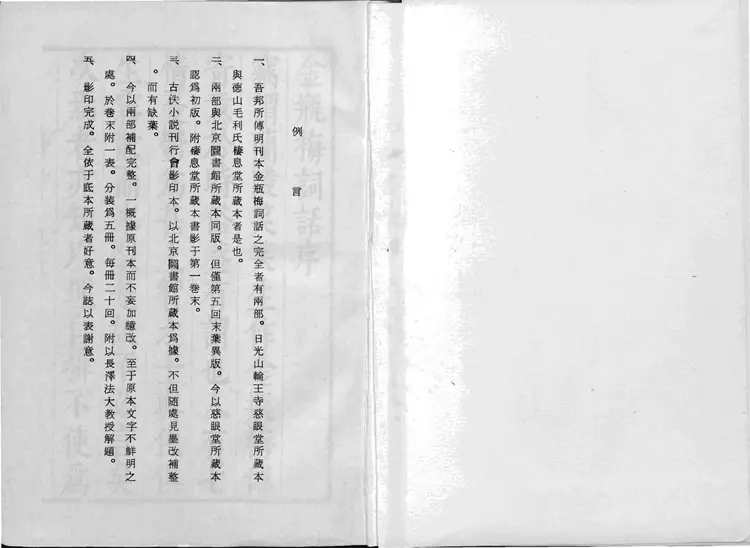 例言
一、吾邦所傳明刊本金瓶梅詞話之完全者有兩部。日光山輪王寺慈眼堂所藏本
與德山毛利氏棲息堂所藏本者是也。
二、兩部與北京圖書館所藏本同版。但僅第五回末葉異版。今以慈眼堂所藏本
認爲初版。附棲息堂所藏本書影于第一卷末。
三、古佚小説刊行會影印本。以北京圖書館所藏本爲據。不但隨處見墨改補整
。而有缺葉。
四、今以兩部補配完整。一概據原刊本而不妄加臆改。至于原本文字不鮮明之
處。於卷末附一表。分裝爲五冊。每冊二十回。附以長澤法大教授解題。
五、影印完成。全依于底本所藏者好意。今誌以表謝意。
金瓶梅詞話序